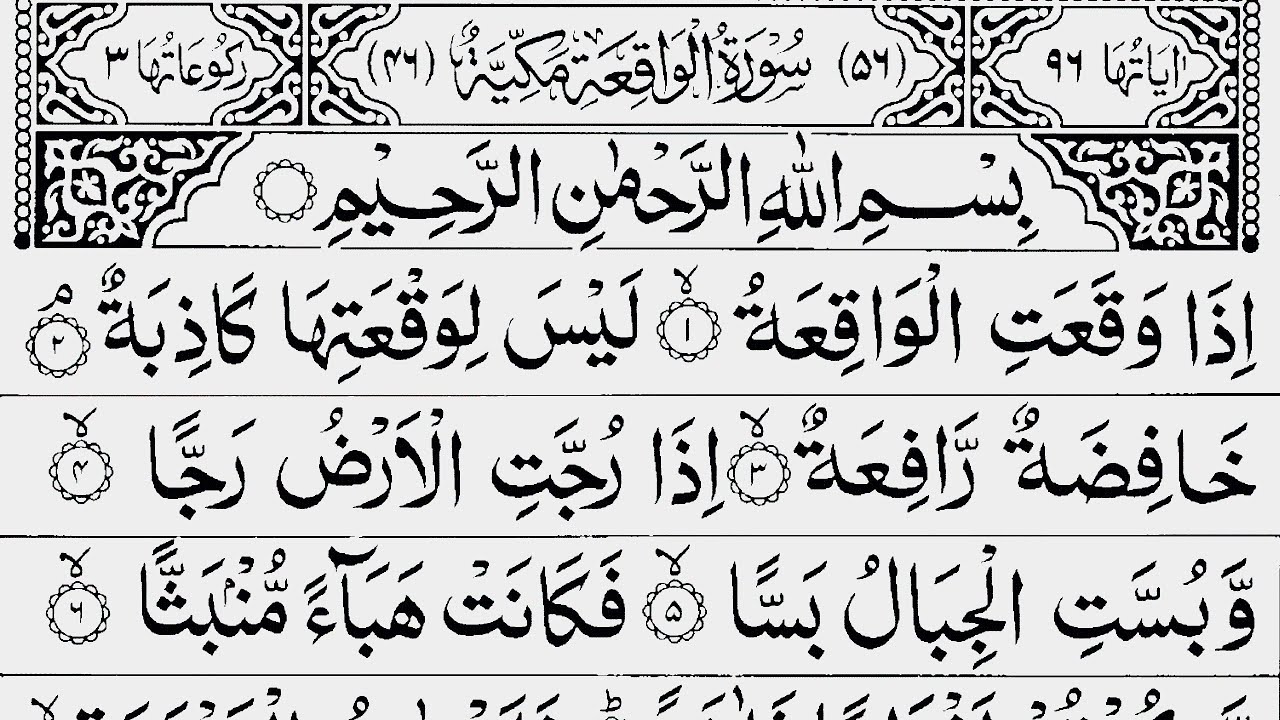 اٰيَاتُهَا ۹۶ (۵۶) سُوْرَةُ الْوَاقِعَةِ مَكِّيَّةٌ (۴۶) رُكُوْعَاتُهَا ۳
بِسْمِ اللّٰهِ الرَّحْمٰنِ الرَّحِيْمِ
اِذَا وَقَعَتِ الْوَاقِعَةُ ۙ‏﴿۱﴾ لَيْسَ لِوَقْعَتِهَا كَاذِبَةٌ ۘ‏﴿۲﴾
خَافِضَةٌ رَّافِعَةٌ ۙ‏﴿۳﴾ اِذَا رُجَّتِ الْاَرْضُ رَجًّا ۙ‏﴿۴﴾
وَّبُسَّتِ الْجِبَالُ بَسًّا ۙ‏﴿۵﴾ فَكَانَتْ هَبَآءً مُّنْۢبَثًّا ۙ‏﴿۶﴾